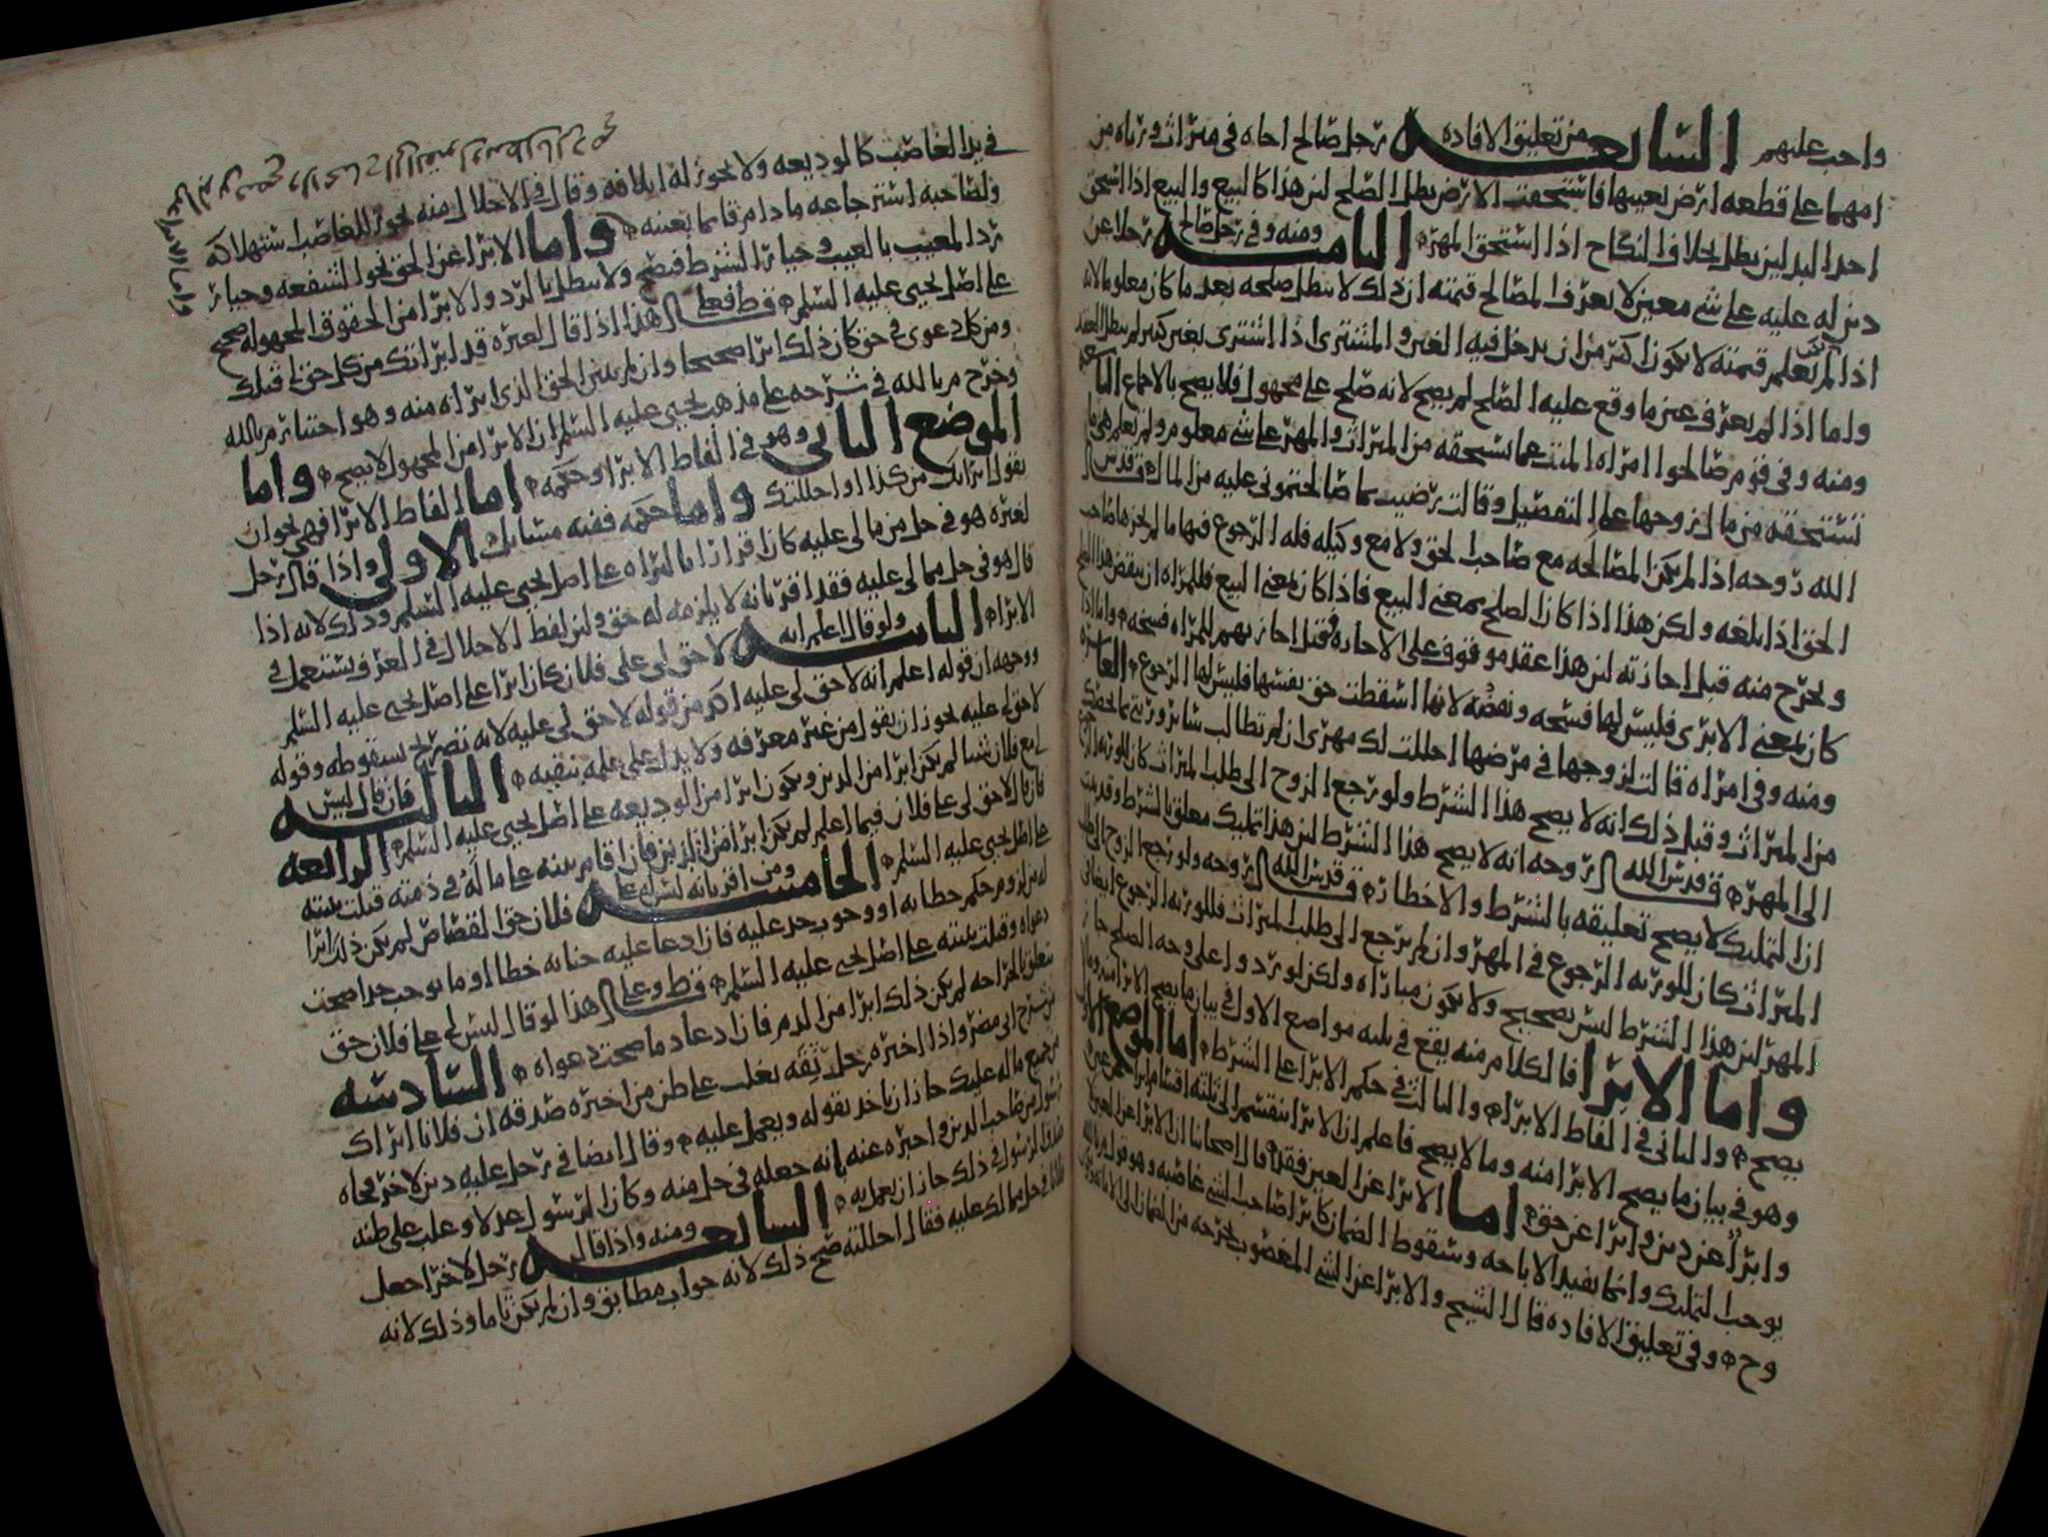 واجب عليهم السابعة من تعليق الافادة رجل صالح اخاه في ميراث ورثاه من
امهما على قطعة ارض بعينها فاستحقت الارض بطل الصلح لان هذا كالبيع والبيع اذا استحق
احد البدلين بطل بخلاف النكاح اذا استحق المهر الثامنة ومنه وفي رجل صالح رجلا عن
دين له عليه على شي معين لا يعرف المصالح قيمته ان ذلك لا يبطل صلحه بعد ما كان معلوما لانه
اذا لم تعلم قيمته لا يكون اكثر من ان يدخل فيه الغبن والمشتري اذا اشترى بغبن كبير لم يبطل العقد
واما اذا لم يعرف عين ما وقع عليه الصلح لم يصح لانه صلح على مجهول فلا يصح بالاجماع التاسعة
ومنه وفي قوم صالحوا امراة الميت عما تستحقه من الميراث والمهر على شي معلوم ولم تعلم هي ما
تستحقه من مال زوجها على التفصيل وقالت رضيت بما صالحتموني عليه من المال قدس
الله روحه اذا لم تكن المصالحة مع صاحب الحق ولا مع وكيله فله الرجوع فيها ما لم يجزها صاحب
الحق اذا بلغه ولكن هذا اذا كان الصلح بمعنى البيع فاذا كان بمعنى البيع فللمراة ان تنقض هذا الصلح
وتخرج منه قبل اجازته لان هذا عقد موقوف على الاجازة وقبل اجازتهم للمراة فسخه واما اذا
كان بمعنى الابرى فليس لها فسخه ونقضه لانها اسقطت حق نفسها فليس لها الرجوع العاشرة
ومنه وفي امراة قالت لزوجها في مرضها احللت لك مهري ان لم تطالب سائر ورثتي بما يخصك
من الميراث وقبل ذلك انه لا يصح هذا الشرط ولو رجع الزوج الى طلب الميراث كان للورثة الرجوع
الى المهر قدس الله روحه انه لا يصح هذا الشرط لان هذا تمليك معلق بالشرط وقد ثبت
ان التمليك لا يصح تعليقه بالشرط والاخطار قدس الله روحه ولو رجع الزوج الى طلب
الميراث كان للورثة الرجوع في المهر وان لم يرجع الى طلب الميراث فللورثة الرجوع ايضا في
المهر لان هذا الشرط ليس بصحيح ولا يكون مباراة ولكن لو ردوا على وجه الصلح جاز
واما الابرا فالكلام منه يقع في ثلثة مواضع الاول في بيان ما يصح الابرا منه وما لا
يصح والثاني في الفاظ الابرا والثالث في حكم الابرا على الشرط اما الموضع الاول
وهو في بيان ما يصح الابرا منه وما لا يصح فاعلم ان الابرا ينقسم الى ثلثة اقسام ابرا عن عين
وابرا عن دين وابرا عن حق اما الابرا عن العين فقد قال اصحابنا ان الابرا عن العين لا
يوجب التمليك وانما يفيد الاباحة وسقوط الضمان كابرا صاحب الشي غاصبه وهو قول م بالله
وح وفي تعليق الافادة قال الشيخ والابرا عن الشي المغصوب يخرجه من الضمان الى الامانة
في يد الغاصب كالوديعة ولا يجوز له اتلافه وقال في الاحلال منه يجوز للغاصب استهلاكه
ولصاحبه استرجاعه ما دام قائما بعينه واما الابرا عن الحق نحو الشفعة وخيار
رد المعيب بالعيب وخيار الشرط فيصح ولا يبطل بالرد والابرا من الحقوق المجهولة صحيح
على اصل يحيى عليه السلم فعلى هذا اذا قال لغيره قد ابراتك من كل حق لي قبلك
ومن كل دعوى في حق كان ذلك ابرا صحيحا وان لم يتبين الحق الذي ابراه منه وهو اختيار م بالله
وخرج م بالله في شرحه على مذهب يحيى عليه السلم ان الابرا من المجهول لا يصح واما
الموضع الثاني وهو في الفاظ الابرا وحكمه اما الفاظ الابرا فهي نحو ان
يقول ابراتك من كذا او احللتك واما حكمه ففيه مسايل الاولى واذا قال رجل
لغيره هو في حل من مالي عليه كان اقرارا بالبراه على اصل يحيى عليه السلم وذلك لانه اذا
قال هو في حل مما لي عليه فقد اقر بانه لا يلزمه له حق ولان لفظ الاحلال في العرف يستعمل في
الابرا الثانية ولو قال اعلم انه لا حق لي على فلان كان ابرا على اصل يحيى عليه السلم
ووجهه ان قوله اعلم انه لا حق لي عليه اكد من قوله لا حق لي عليه لانه تصريح بسقوطه وقوله
لا حق لي عليه يجوز ان يقول من غير معرفة ولا يدل على علمه بنفيه الثالثة فان قال ليس
لي مع فلان شيا لم يكن ابرا من الدين ويكون ابرا من الوديعة على اصل يحيى عليه السلم الرابعة
فان قال لا حق لي على فلان فيما اعلم لم يكن ابرا من الدين فان اقام بينة على ماله في ذمته قبلت بينته
على اصل يحيى عليه السلم الخامسة ومن اقر بانه ليس له على فلان حق القصاص لم يكن ذلك ابرا
له من لزوم حكم خطائه او وجوب حد عليه فان ادعا عليه جناية خطا او ما يوجب حدا صحت
دعواه وقبلت بينته على اصل يحيى عليه السلم وعلى هذا لو قال ليس لي على فلان حق
يتعلق بالجراحة لم يكن ذلك ابرا من الدم فان ادعا دما صحت دعواه السادسة
واذا اخبره رجل ثقة يغلب على ظن من اخبره صدقه ان فلانا ابراك
من جميع ماله عليك جاز ان ياخذ بقوله ويعمل عليه وقال ايضا في رجل عليه دين لاخر فجاه
رسول من صاحب الدين واخبره عنه انه جعله في حل منه وكان الرسول عدلا وغلب على ظنه
صدق الرسول في ذلك جاز ان يعمل به السابعة ومنه واذا قال رجل لاخر اجعل
فلانا في حل مما لك عليه فقال احللته صح ذلك لانه جواب مطابق وان لم يكن تاما وذلك لانه